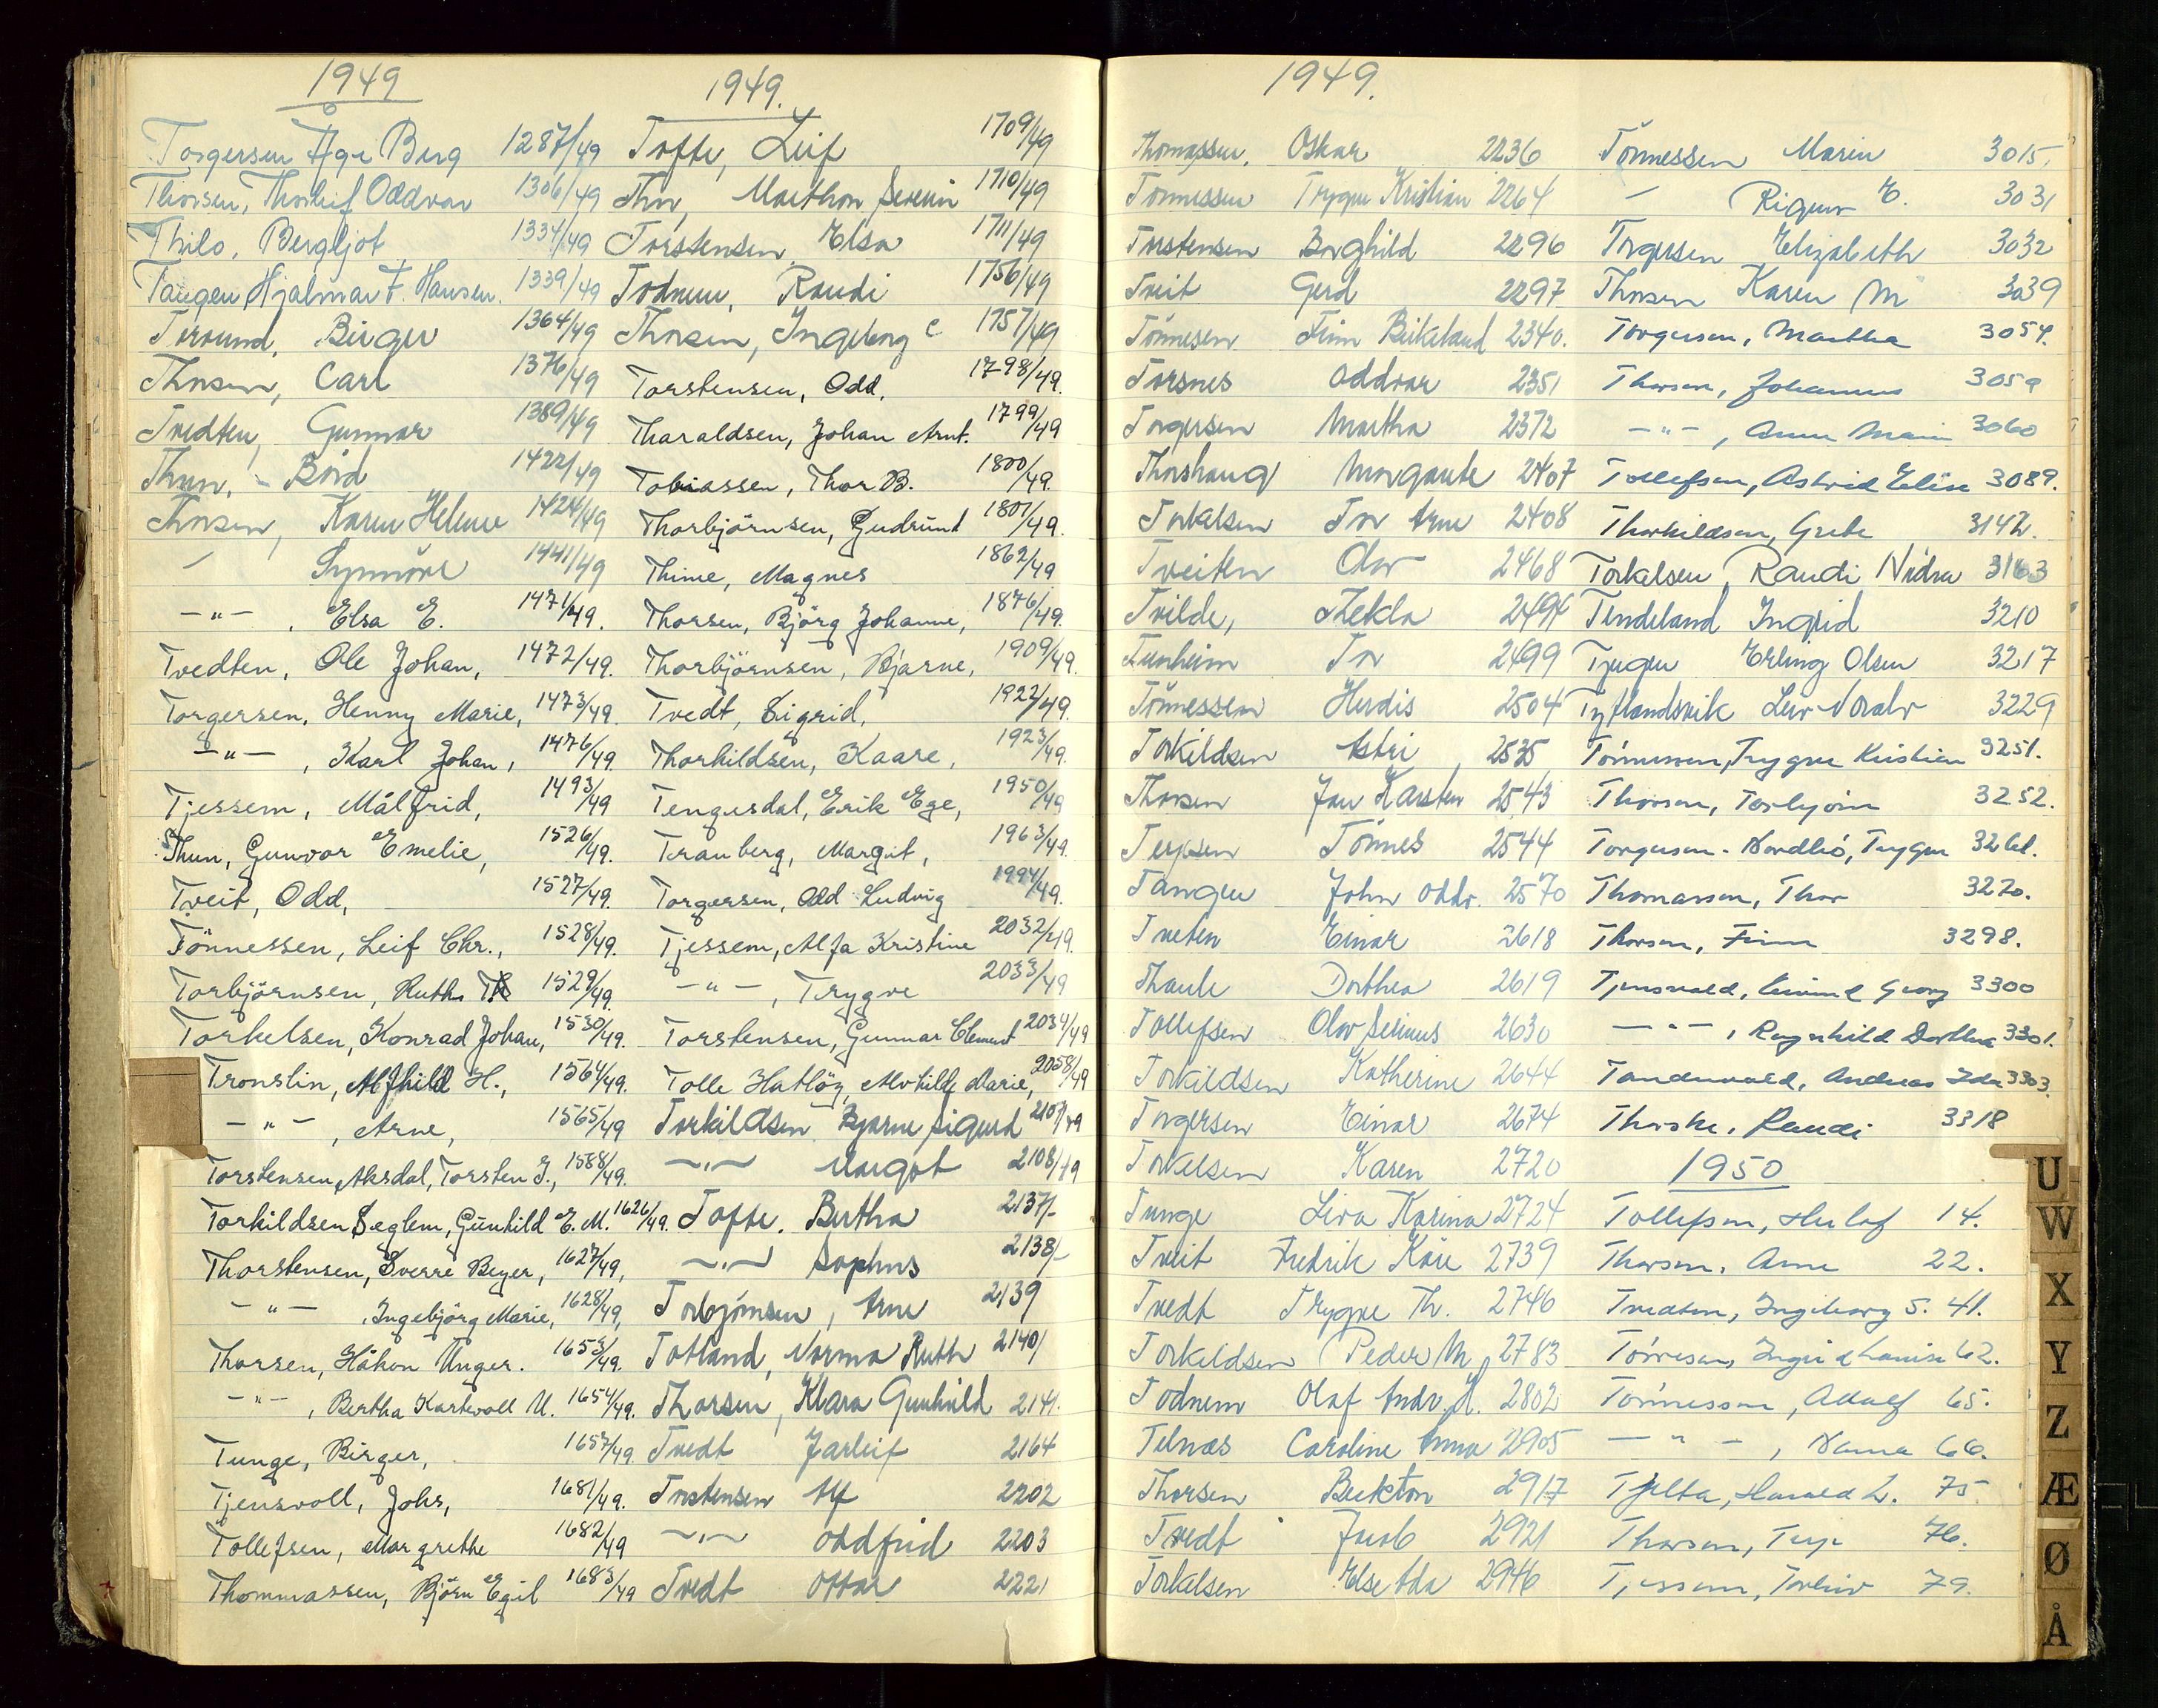 1949
Torgersen Åge Berg 1287/49
Thorsen, Thorleif Oddvar 1306/49
Thilo, Bergljot 1334/49
Tangen Hjalmar F. Hansen. 1339/49
Birger 1364/49
Thorsen, Carl 1376/49
Tvedten, Gunnar 1389/49
Thun, - Bård 1422/49
Thorsen, Karen Helene 1424/49
Synnöve 1441/49
-"- , Elsa E. 1471/49.
Tvedten, Ole Johan, 1472/49.
Torgersen, Henny Marie, 1473/49.
-"- , Karl Johan, 1476/49.
Tjessem, Målfrid, 1493/49
Thun, Gunvor Emelie, 1526/49.
Tveit, Odd, 1527/49.
Tönnessen, Leif Chr., 1528/49.
Torbjörnsen, Ruth 1529/49.
Torkelsen, Konrad Johan, 1530/49.
Tronslin, Alfhild H., 1564/49.
-"- , Arne, 1565/49
Torstensen, Aksdal, Torsten J., 1588/49.
Torkildsen Seglem, Gunhild E. M. 1626/49.
Thorstensen, Sverre Beyer, 1627/49,
-"- , Ingebjörg Marie, 1628/49,
Thorsen, Håkon Unger. 1653/49.
-"- , Bertha Kartevoll U. 1654/49.
Tunge, Birger, 1657/49.
Tjensvoll, Johs, 1681/49.
Tollefsen, Margrethe 1682/49
Thommassen, Björn Egil 1683/49
1949.
Tofte, Leif 1709/49
Thu, Marthon Severin 1710/49
Torstensen, Elsa 1711/49
Todnem, Randi 1756/49
Thorsen, Ingeborg C 1757/49
Torstensen, Odd, 1798/49.
Tharaldsen, Johan Arnt. 1799/49
Tobiassen, Thor B. 1800/49.
Thorbjörnsen, Gudrund 1801/49.
Thime, Magnes 1862/49
Thorsen, Björg Johanne, 1876/49.
Thorbjörnsen, Bjarne, 1909/49.
Tvedt, Sigrid, 1922/49.
Thorkildsen, Kaare, 1923/49.
Tengesdal, Erik Ege, 1950/49
Tranberg, Margit, 1963/49.
Torgersen, Odd Ludvig 1994/49.
Tjessem, Alfa Kristine 2032/49.
-"- , Trygve 2033/49
Torstensen, Gunnar Clement 2034/49
Tolle Hatløy, Alvhilde Marie, 2058/49
Torkildsen Bjarne Sigurd 2107/49
-"- Margot 2108/49
Tofte. Bertha 2137/-
-"- Sophus 2138/-
Torbjörnsen, Arne 2139
Totland, Norma Ruth 2140/
Thorsen, Klara Gunhild 2141.
Tvedt Jarleif 2164
Torstensen Alf 2202
-"- Oddfrid 2203
Tvedt Ottar 2221
1949.
Thomassen, Oskar 2236
Tönnessen Trygve Kristian 2264
Torstensen Borghild 2296
Tveit Gerd 2297
Tönnesen Finn Birkeland 2340.
Torsnes Oddvar 2351
Torgersen Martha 2372
Thorshaug Margarete 2407
Torkelsen Tor Arne 2408
Tveiten Olav 2468
Tvilde, Thekla 2494
Tunheim Tor 2499
Tönnessen Herdis 2504
Torkildsen Astri 2535
Thorsen Jan Karsten 2543
Terjesen Tönnes 2544
Tangen John Oddv. 2570
Tveten Einar 2618
Thaule Dorthea 2619
Tollefsen Olav Serinus 2630
Torkildsen Katherine 2644
Torgersen Einar 2674
Torkelsen Karen 2720
Tunge Liva Karina 2724
Tveit Fredrik Kåre 2739
Tvedt Trygve Th. 2746
Torkildsen Peder M 2783
Todnem Olaf Andr. 2802
Telnæs Caroline Anna 2905
Thorsen Beckton 2917
Tvedt Jacob 2921
Torkelsen Else Ada 2946
Tönnessen Maren 3015.
E. 3031
Torgersen Elizabeth 3032
Thorsen Karen M 3039
Torgersen, Martha 3054.
Thorsen, Johannes 3059
-"- , Anna Marie 3060
Tollefsen, Astrid Elise 3089.
Thorkildsen, Grete 3142.
Torkelsen, Randi Nidra 3163
Tendeland Ingrid 3210
Tjugen Erling Olsen 3217
Tyflandsvik Leiv Toralv 3229
Tönnessen, Trygve Kristian 3251.
Thorsen, Torbjörn 3252.
Torgersen-Nordbö, Trygve 3261.
Thomassen, Thor 3270.
Thorsen, Finn 3298.
Tjensvold, Georg 3300
-"- , Ragnhild Dorthea 3301.
Tandervold, Andreas Ida 3303.
Randi 3318
1950
Tollefsen, 14.
Thorsen, Anne 22.
Tvedten, Ingeborg S. 41.
Ingrid Louise 62.
Tönnessen, Adolf 65.
-"- , Nanna 66.
Tjelta, Harald L. 75.
Thorsen, Terje 76.
Tjessem, Torleiv 79.
U
W
X
Y
Z
Æ
Ø
Å